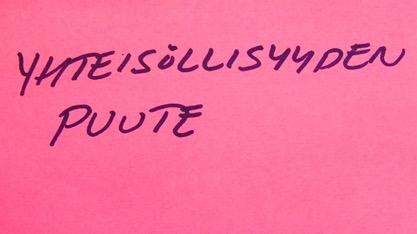 YHTEISÖLLISYYDEN
PUUTE